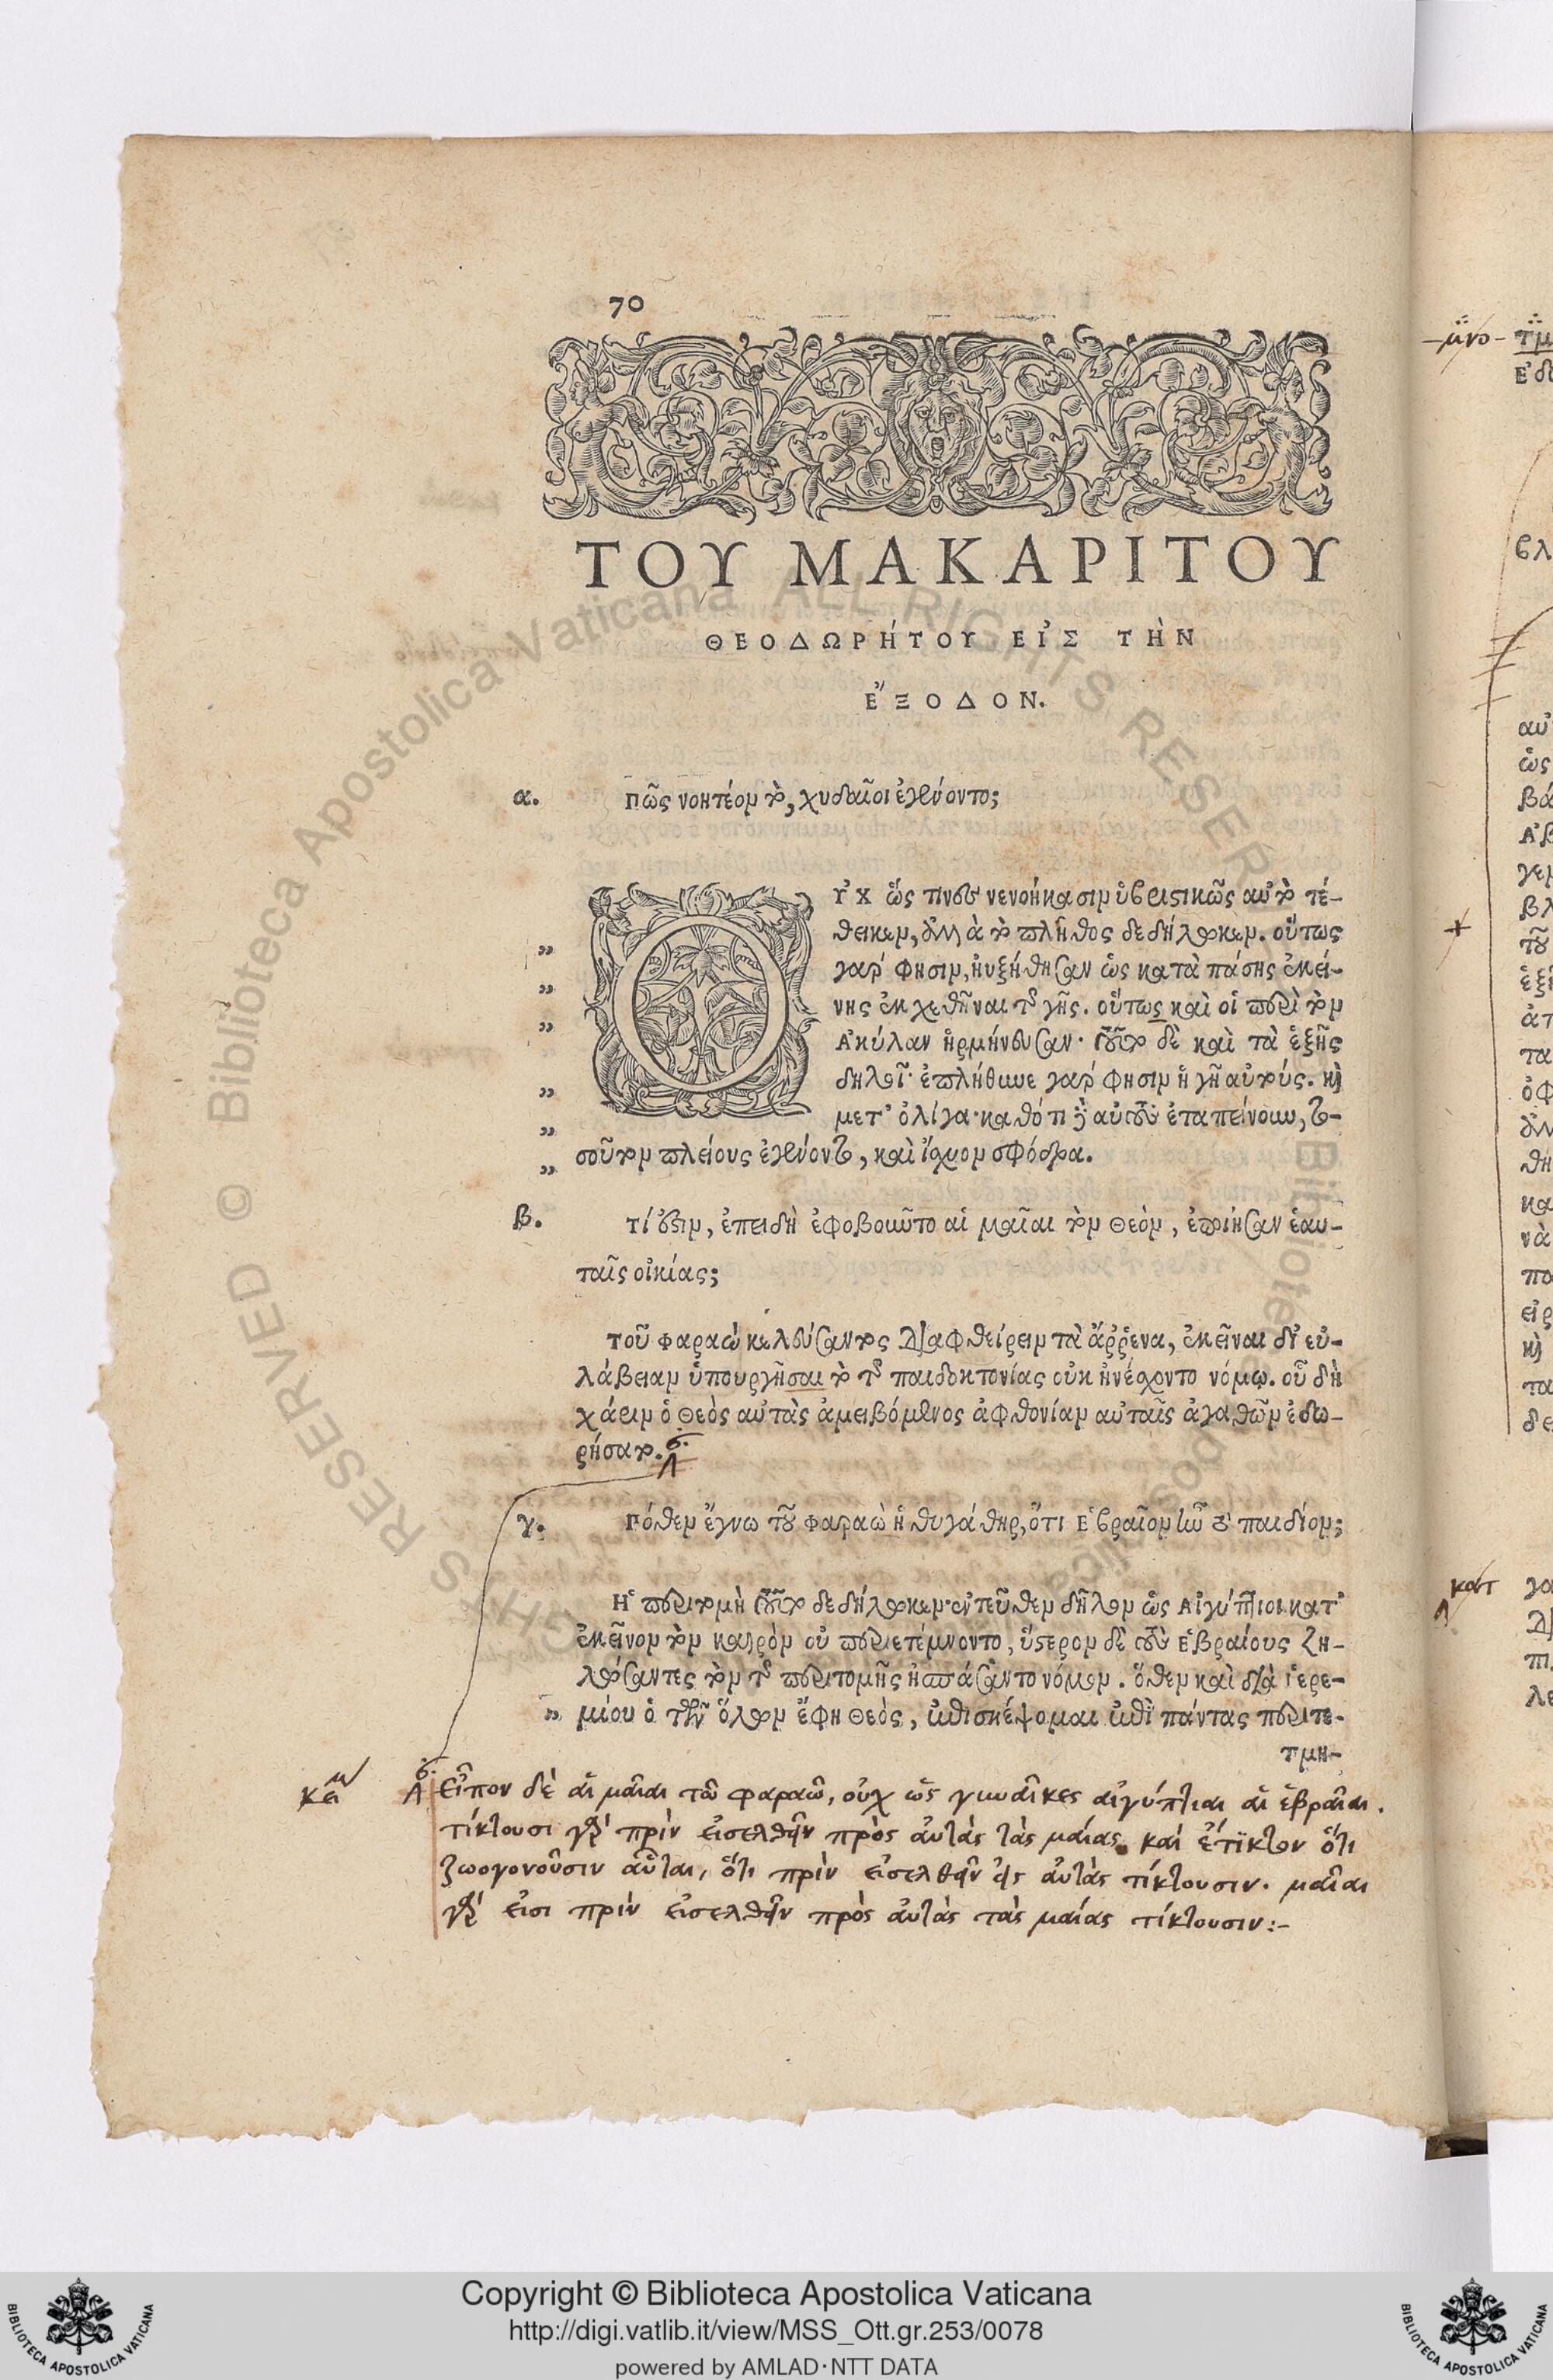 70
ΤΟΥ ΜΑΚΑΡΙΤΟΥ
ΘΕΟΔΩΡΉΤΟΥ ΕἸΣ ΤῊΝ
ἜΞΟΔΟΝ.
α. Πῶς νοητέον τὸ, χυδαῖοι ἐγένοντο;
ΟΥ̓Χ ὥς τινες νενοήκασιν ὑβριστικῶς αὐτὸ τέ-
„ θεικεν, ἀλλὰ τὸ πλῆθος δεδήλωκεν. οὕτως
„ γάρ φησιν, ηὐξήθησαν ὡς κατὰ πάσης ἐκεί-
„ νης ἐκχεθῆναι τῆς γῆς. οὕτως καὶ οἱ περὶ τὸν
Ἀκύλαν ἡρμήνευσαν· τοῦτο δὲ καὶ τὰ ἑξῆς
„ δηλοῖ· ἐπλήθυνε γάρ φησιν ἡ γῆ αὐτούς. καὶ
„ μετ' ὀλίγα· καθότι δὲ αὐτοὺς ἐταπείνουν, το-
„ σοῦτον πλείους ἐγένοντο, καὶ ἴσχυον σφόδρα.
β. Τί ἐστιν, ἐπειδὴ ἐφοβοῦντο αἱ μαῖαι τὸν Θεὸν, ἐποίησαν ἑαυ-
ταῖς οἰκίας;
Τοῦ Φαραὼ κελεύσαντος διαφθείρειν τὰ ἄῤῥενα, ἐκεῖναι δι' εὐ-
λάβειαν ὑπουργῆσαι τῷ τῆς παιδοκτονίας οὐκ ἠνέσχοντο νόμῳ. οὗ δὴ
χάριν ὁ Θεὸς αὐτὰς ἀμειβόμενος ἀφθονίαν αὐταῖς ἀγαθῶν ἐδω-
ρήσατο.
γ. Πόθεν ἔγνω τοῦ Φαραὼ ἡ θυγάτηρ, ὅτι Ἑβραῖον ἦν τὸ παιδίον;
Ἡ περιτομὴ τοῦτο δεδήλωκεν· ἐντεῦθεν δῆλον ὡς Αἰγύπτιοι κατ'
ἐκεῖνον τὸν καιρὸν οὐ περιετέμνοντο, ὕστερον δὲ τοὺς Ἑβραίους ζη-
λώσαντες τὸν τῆς περιτομῆς ἠσπάσαντο νόμον. ὅθεν καὶ διὰ Ἱερε-
„ μίου ὁ τῶν ὅλων ἔφη Θεὸς, ἐπισκέψομαι ἐπὶ πάντας περιτε-
τμη-
Εἶπον δὲ αἱ μαῖαι τῶ φαραῶ, οὐχ ὡς γυναῖκες αἰγύπτιαι αἱ ἑβραῖαι.
τίκτουσι γὰρ πρὶν εἰσελθεῖν πρὸς αὐτὰς τὰς μαίας. καὶ ἔτικτον ὅτι
ζωογονοῦσιν αὗται, ὅτι πρὶν εἰσελθεῖν εἰς αὐτὰς τίκτουσιν. μαῖαι
γάρ εἰσι πρὶν εἰσελθεῖν πρὸς αὐτὰς τὰς μαίας τίκτουσιν:-
Copyright © Biblioteca Apostolica Vaticana
http://digi.vatlib.it/view/MSS_Ott.gr.253/0078
powered by AMLAD·NTT DATA